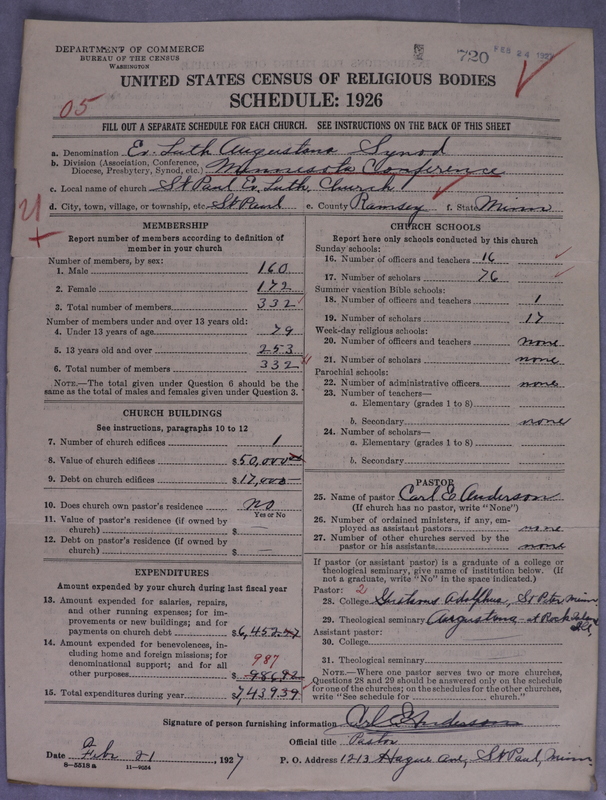 DEPARTMENT OF COMMERCE
BUREAU OF THE CENSUS
WASHINGTON
720 FEB 24 1927
UNITED STATES CENSUS OF RELIGIOUS BODIES
SCHEDULE: 1926
05
FILL OUT A SEPARATE SCHEDULE FOR EACH CHURCH. SEE INSTRUCTIONS ON THE BACK OF THIS SHEET
a. Denomination Ev. Luth Augustana Synod
b. Division (Association, Conference, Diocese, Presbytery, Synod, etc.) Minnesota Conference
c. Local name of church St Paul Ev. Luth. Church
d. City, town, village, or township, etc. St Paul e. County Ramsey f. State Minn
MEMBERSHIP
Report number of members according to definition of member in your church
Number of members, by sex:
1. Male 160
2. Female 172
3. Total number of members 332
Number of members under and over 13 years old:
4. Under 13 years of age 79
5. 13 years old and over 253
6. Total number of members 332
NOTE.—The total given under Question 6 should be the same as the total of males and females given under Question 3.
CHURCH BUILDINGS
See instructions, paragraphs 10 to 12
7. Number of church edifices 1
8. Value of church edifices $50,000
9. Debt on church edifices $17,000
10. Does church own pastor's residence no
Yes or No
11. Value of pastor's residence (if owned by church) $
12. Debt on pastor's residence (if owned by church) $ —
EXPENDITURES
Amount expended by your church during last fiscal year
13. Amount expended for salaries, repairs, and other running expenses; for improvements or new buildings; and for payments on church debt $6,452.47
14. Amount expended for benevolences, including home and foreign missions; for denominational support; and for all other purposes 987 986.92
15. Total expenditures during year $7,439.39
CHURCH SCHOOLS
Report here only schools conducted by this church
Sunday schools:
16. Number of officers and teachers 16
17. Number of scholars 76
Summer vacation Bible schools:
18. Number of officers and teachers 1
19. Number of scholars 17
Week-day religious schools:
20. Number of officers and teachers none
21. Number of scholars none
Parochial schools:
22. Number of administrative officers none
23. Number of teachers—
a. Elementary (grades 1 to 8)
b. Secondary none
24. Number of scholars—
a. Elementary (grades 1 to 8)
b. Secondary
PASTOR
25. Name of pastor Carl E Anderson
(If church has no pastor, write "None")
26. Number of ordained ministers, if any, employed as assistant pastors none
27. Number of other churches served by the pastor or his assistants none
If pastor (or assistant pastor) is a graduate of a college or theological seminary, give name of institution below. (If not a graduate, write "No" in the space indicated.)
Pastor: 2
28. College Gustavus Adolphus, St Peter Minn.
29. Theological seminary Augustana at Rock Island Ill.
Assistant pastor:
30. College
31. Theological seminary
NOTE.—Where one pastor serves two or more churches, Questions 28 and 29 should be answered only on the schedule for one of the churches; on the schedules for the other churches, write "See schedule for church."
Signature of person furnishing information Carl E Anderson
Official title Pastor
Date Feb 21 1927 P. O. Address 1213 Hague Ave, St Paul, Minn
8—5518a 11—9054